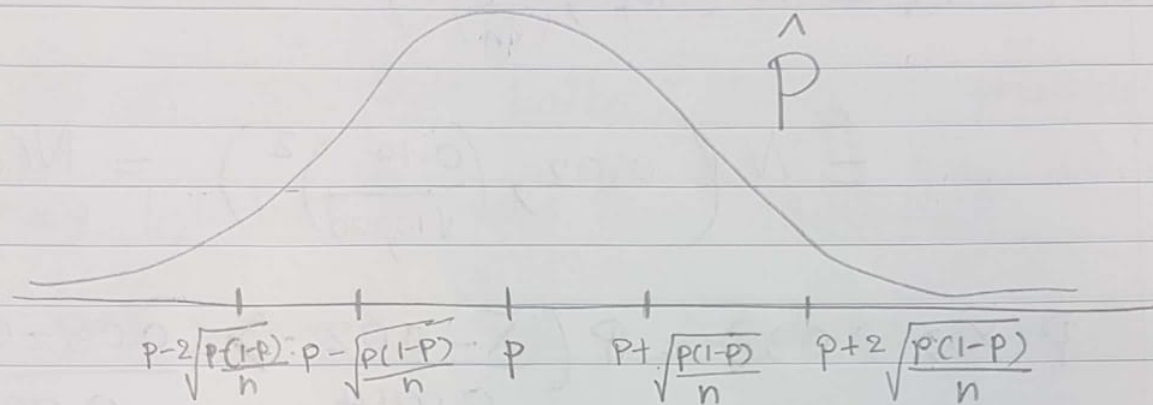 p̂
p-2√(p(1-p)/n) p-√(p(1-p)/n) p p+√(p(1-p)/n) p+2√(p(1-p)/n)